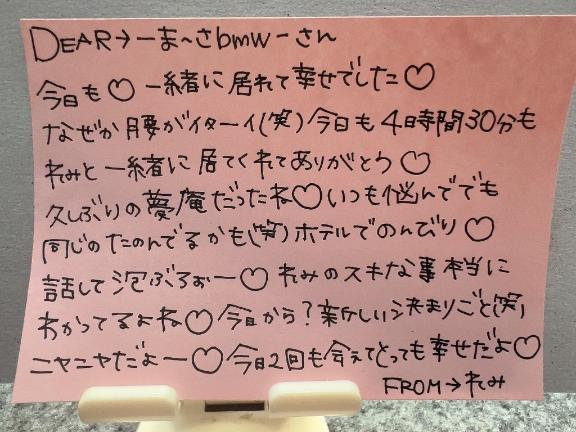 DEAR→ーま～さbmwーさん
今日も♡一緒に居れて幸せでした♡
なぜか腰がイターイ(笑)今日も4時間30分も
れみと一緒に居てくれてありがとう♡
久しぶりの夢庵だったね♡いつも悩んででも
同じのたのんでるかも(笑)ホテルでのんびり♡
話して泡ぶろぉー♡れみのスキな事本当に
わかってるよね♡今日から？新しい決まりごと(笑)
ニヤニヤだよー♡今日2回も会えてとっても幸せだよ♡
FROM→れみ